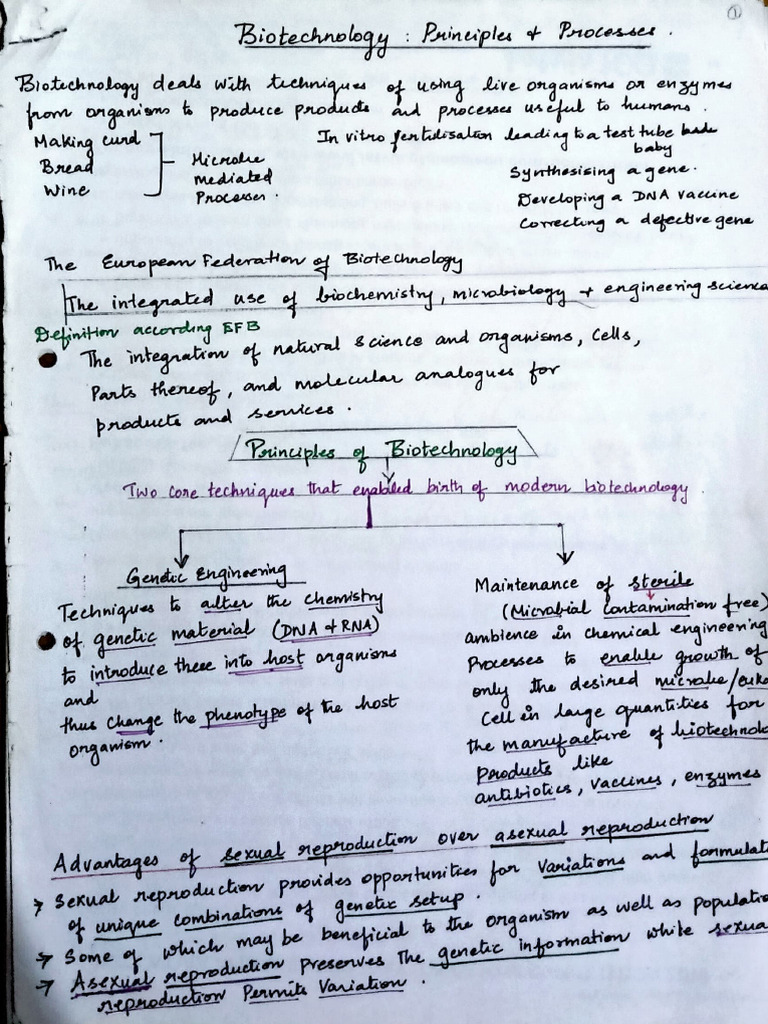 ①
Biotechnology : Principles & Processes .
Biotechnology deals with techniques of using live organisms or enzymes
from organisms to produce products and processes useful to humans .
Making curd
Bread
Wine
Microbe
mediated
Processes .
In vitro fertilisation leading to a test tube
baby
Synthesising a gene.
Developing a DNA vaccine
Correcting a defective gene
The European Federation of Biotechnology
The integrated use of biochemistry, microbiology + engineering science
Definition according EFB
The integration of natural science and organisms, cells,
Parts thereof, and molecular analogues for
products and services .
Principles of Biotechnology
Two core techniques that enabled birth of modern biotechnology .
Genetic Engineering
Techniques to alter the chemistry
of genetic material (DNA & RNA)
to introduce these into host organisms
and
thus change the phenotype of the host
organism .
Maintenance of sterile
(Microbial contamination free)
ambience in chemical engineering
Processes to enable growth of
only the desired microbe/euka
Cell in large quantities for
the manufacture of biotechnolo
Products like
antibiotics, vaccines, enzymes
Advantages of sexual reproduction over asexual reproduction
→ Sexual reproduction provides opportunities for variations and formulat
of unique combinations of genetic setup .
→ Some of which may be beneficial to the organism as well as populatio
→ Asexual reproduction preserves the genetic information while sexua
reproduction Permits Variation .